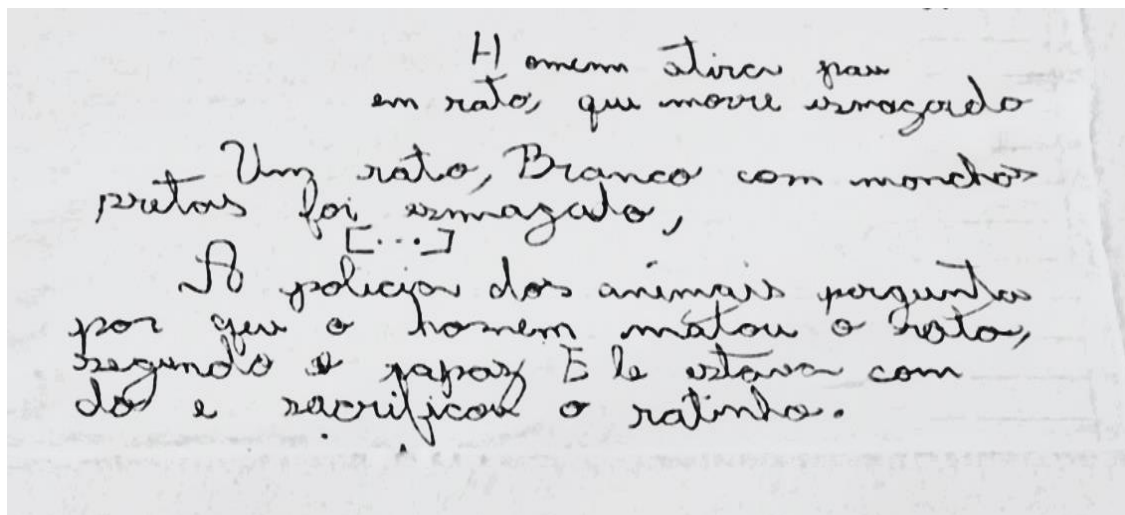 Homem atira pau
em rato, que morre esmagado
Um rato, Branco com manchas
pretas foi esmagado,
[...]
A policia dos animais pergunta
por que o homem matou o rato,
segundo o rapaz Ele estava com
do e sacrificou o ratinho.